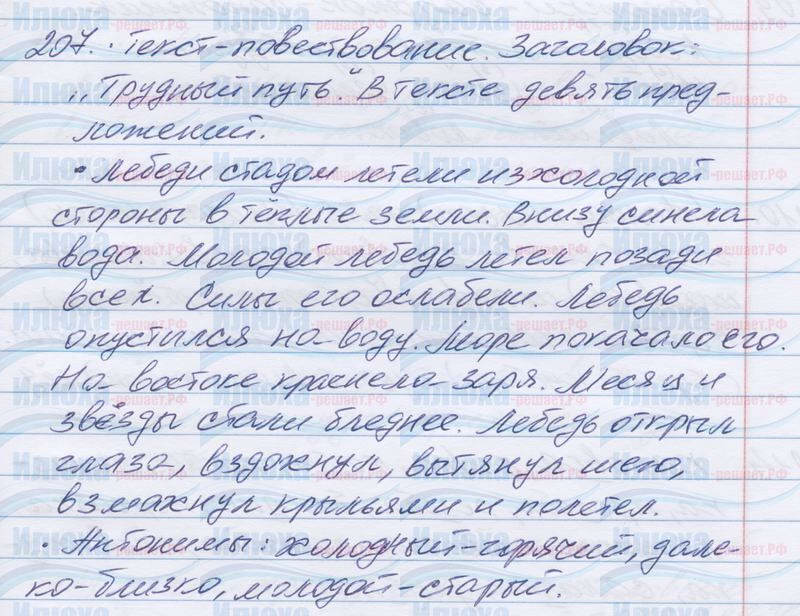 207. • Текст-повествование. Заголовок:
„Трудный путь“ В тексте девять пред-
ложений.
• Лебеди стадом летели из холодной
стороны в тёплые земли. Внизу синела
вода. Молодой лебедь летел позади
всех. Силы его ослабели. Лебедь
опустился на воду. Море покачало его.
На востоке краснела заря. Месяц и
звёзды стали бледнее. Лебедь открыл
глаза, вздохнул, вытянул шею,
взмахнул крыльями и полетел.
• Антонимы: холодный-горячий, дале-
ко-близко, молодой-старый.
Илюха
-решает.РФ